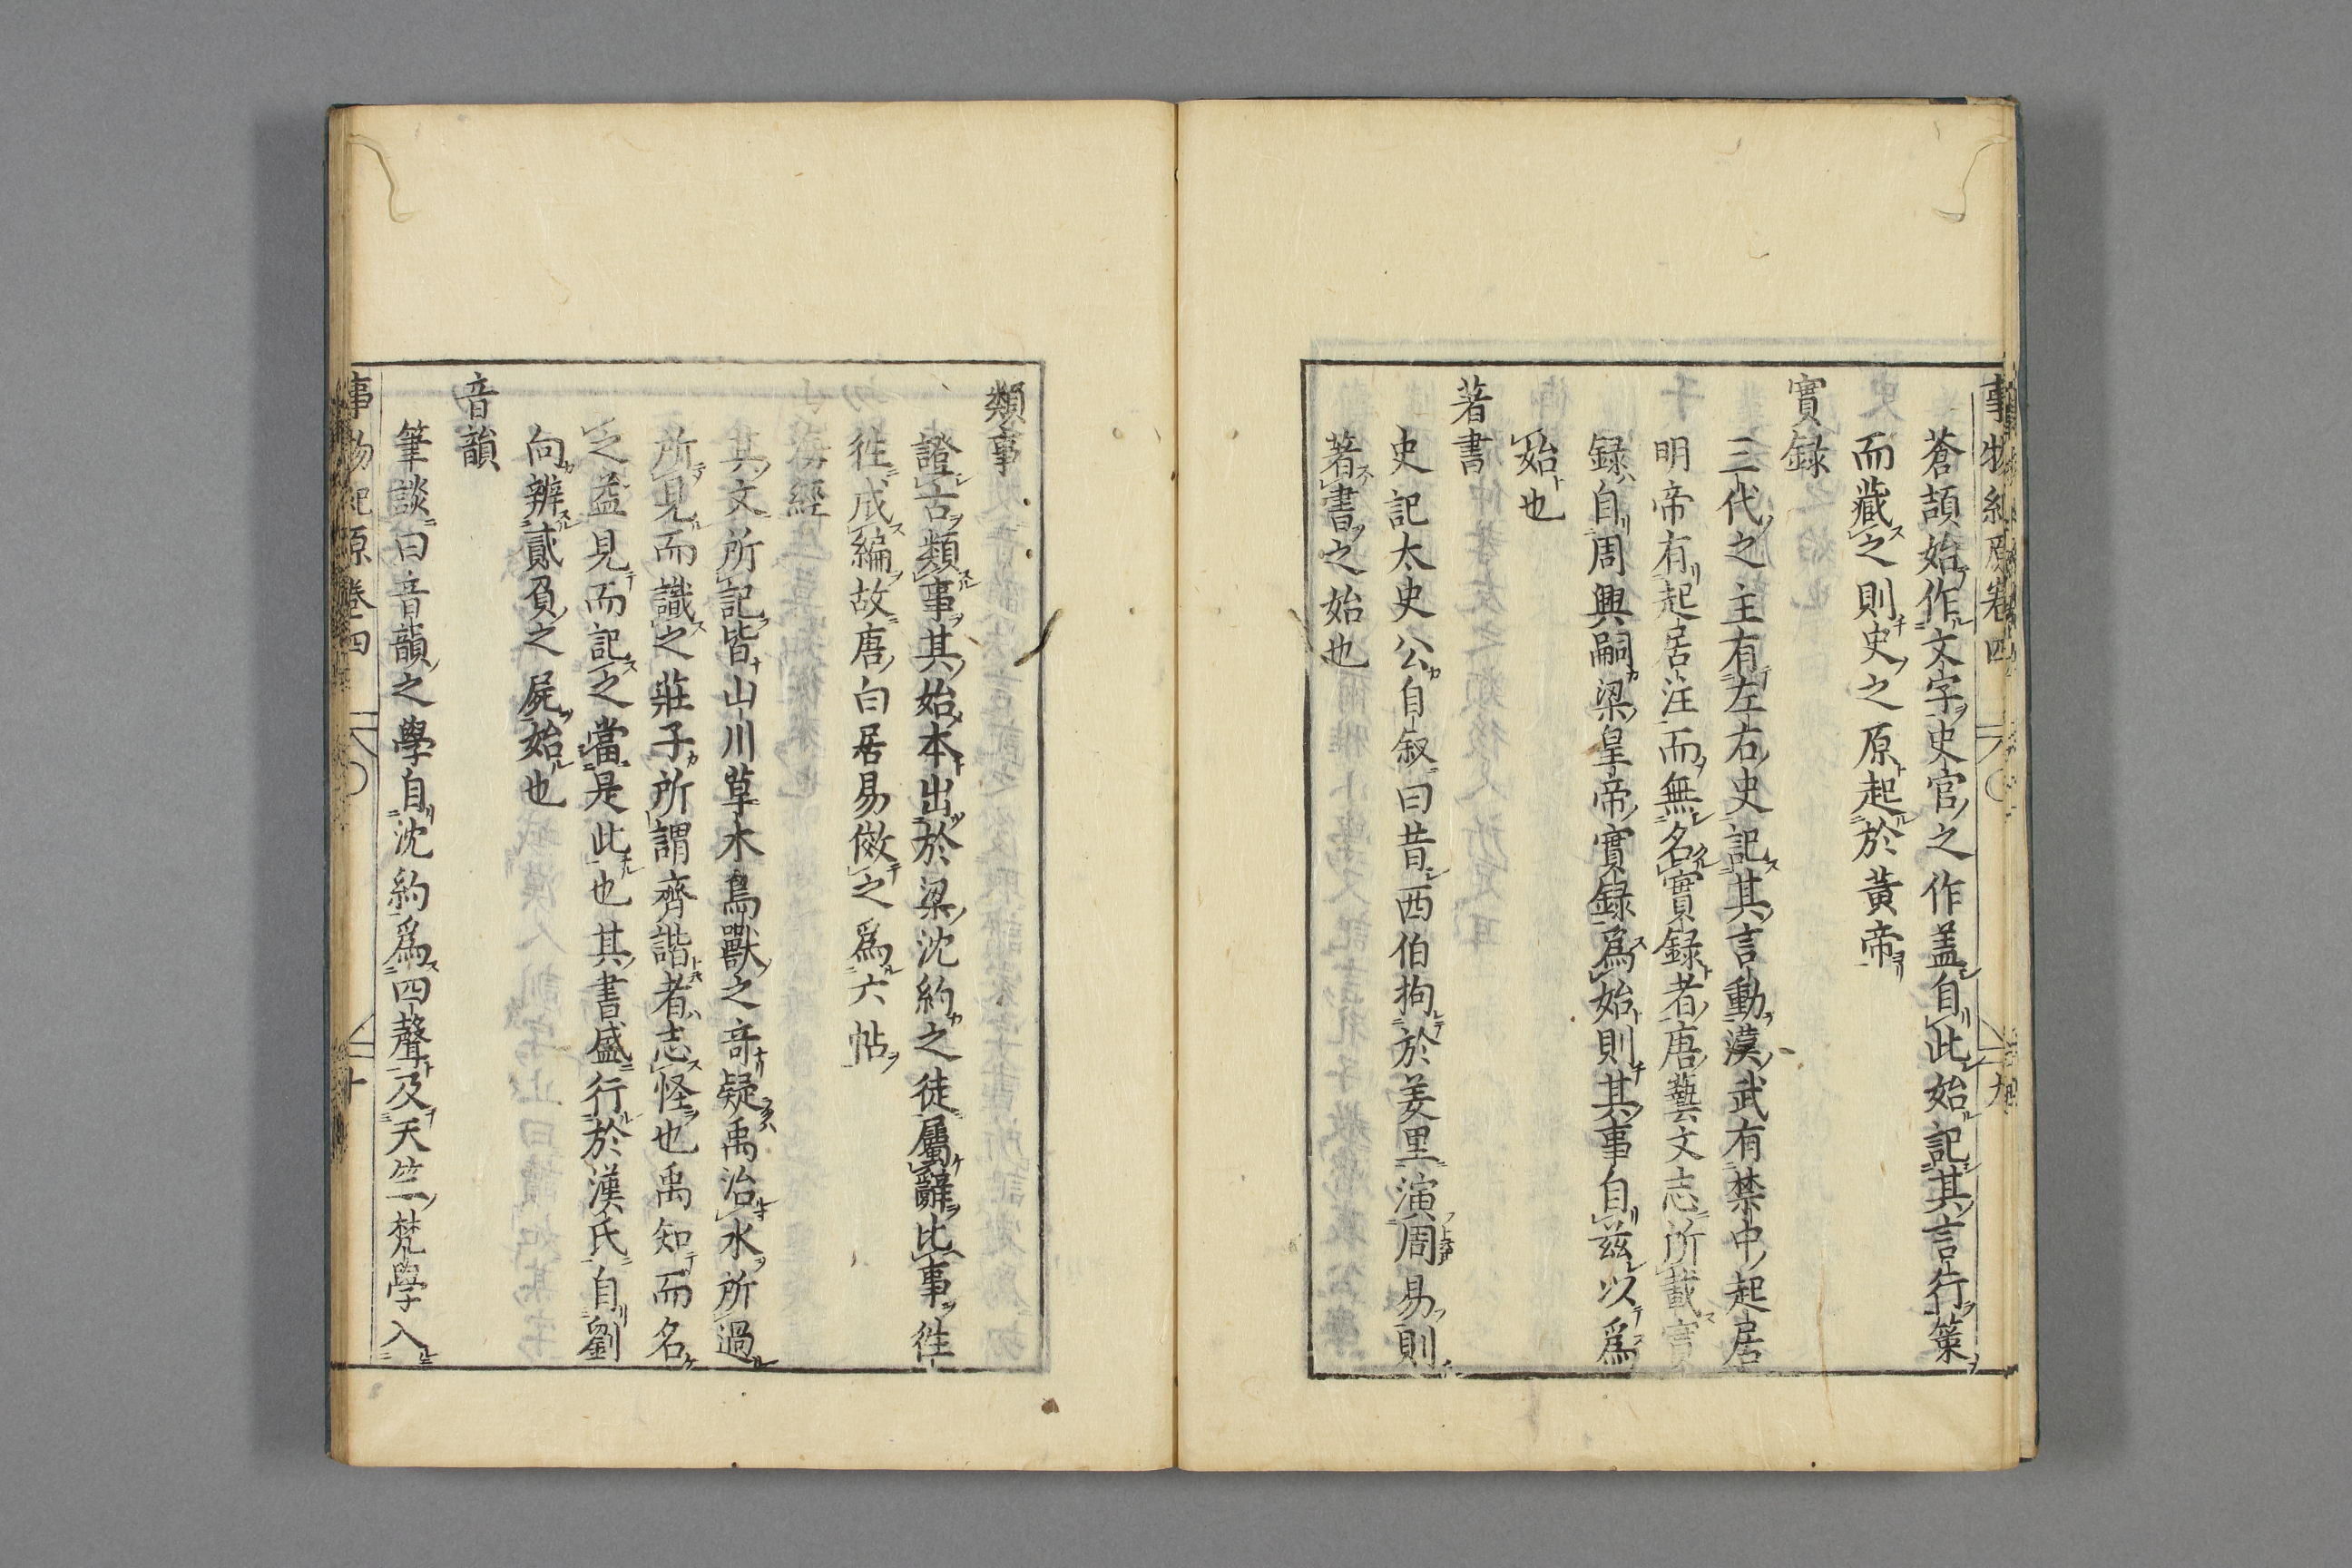 事物紀原卷四
蒼頡始作文字史官之作蓋自此始記其言行策
而藏之則史之原起於黃帝
實録
三代之主有左右史記其言動漢武有禁中起居
明帝有起居注而無名實録者唐藝文志所載實
録自周興嗣梁皇帝實録爲始則其事自兹以爲
始也
著書
史記太史公自叙曰昔西伯拘於羑里演周易則
著書之始也
類事
證古類事其始本出於梁沈約之徒屬辭比事徃
徃成編故唐白居易倣之爲六帖
海經
其文所記皆山川草木鳥獸之竒疑禹治水所過
所見而識之莊子所謂齊諧者志怪也禹知而名
之益見而記之當是此也其書盛行於漢氏自劉
向辨貳負之屍始也
音韻
筆談曰音韻之學自沈約爲四聲及天竺梵學入
事物紀原卷四
十